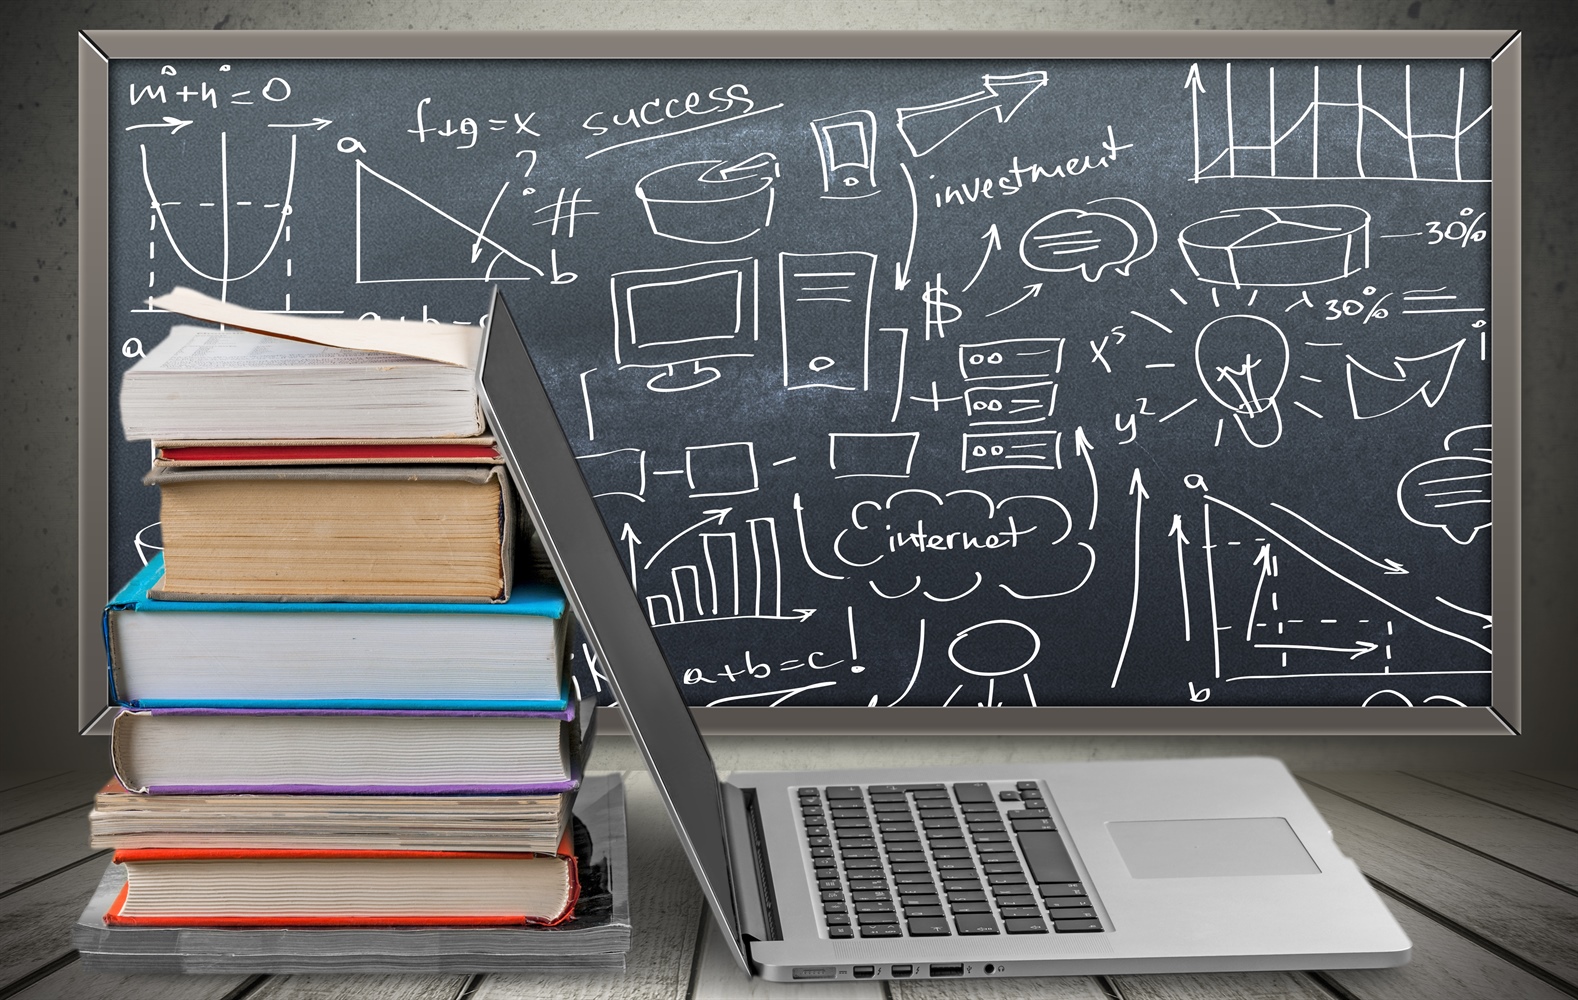 m°+n°=0
f+g=x
success
a
?
#
b
investment
$
30%
30%
x⁵
y²
i
a
+
internet
a
a+b=c!
b